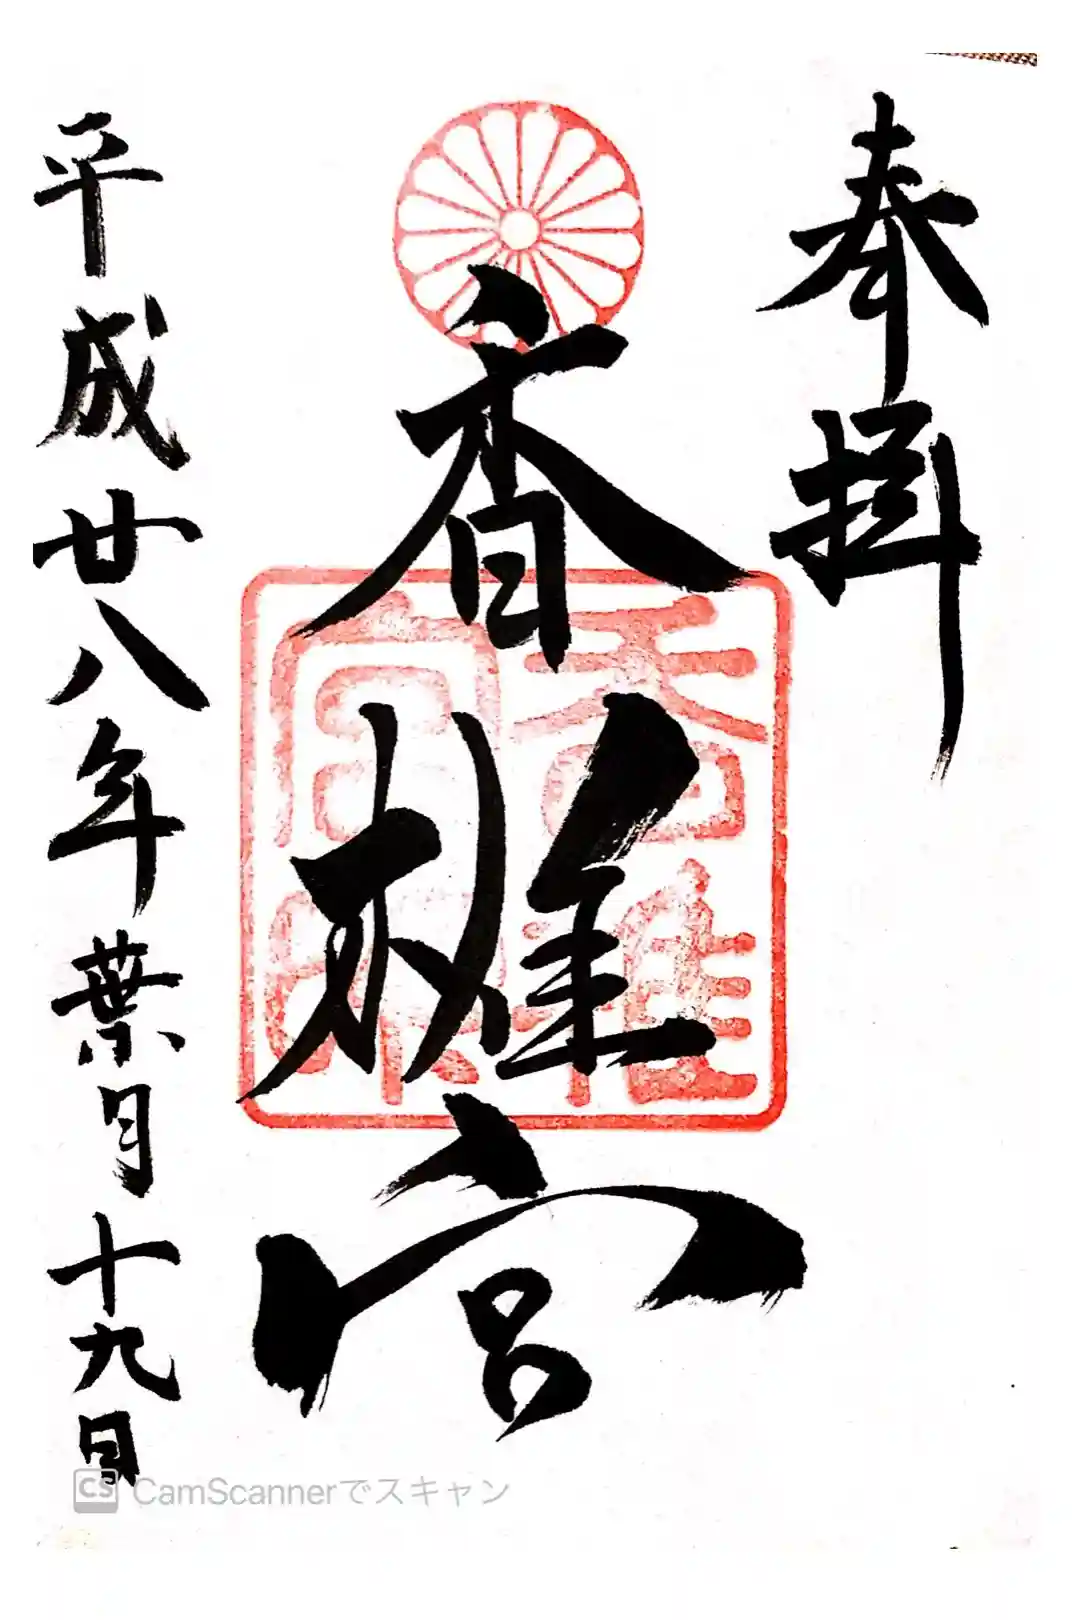 奉拝
香椎宮
香椎宮印
平成廿八年葉月十九日
CS CamScannerでスキャン